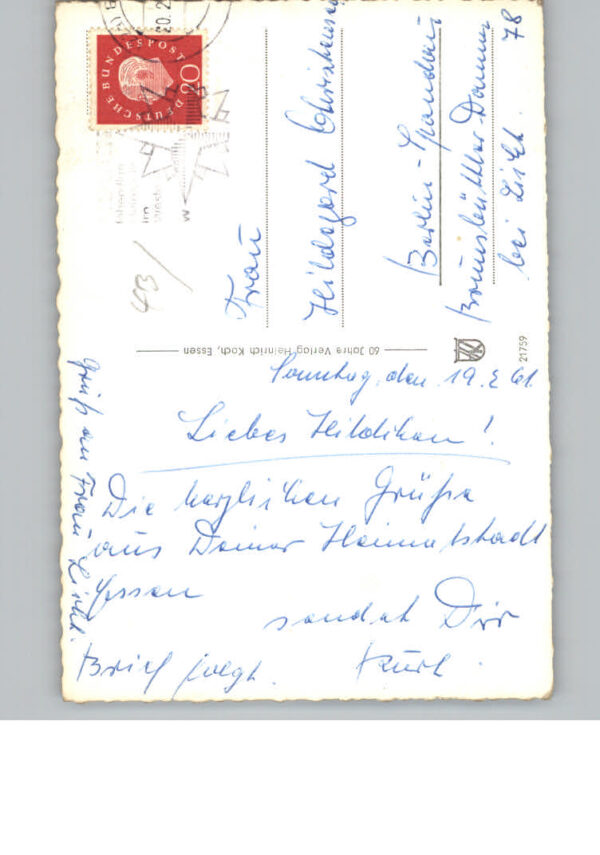 Sonntag, den 19.2.61.
Liebes Hildchen!
Die herzlichen Grüße
aus Deiner Heimatstadt
Essen
sendet Dir
Kurt.
Brief folgt.
Gruß an Frau Licht.
Frau
Hildegard
Berlin-Spandau
Brunsbüttler Damm 78
bei Licht.
60 Jahre Verlag Heinrich Koch, Essen
21759
DEUTSCHE BUNDESPOST
20
20.2
43/